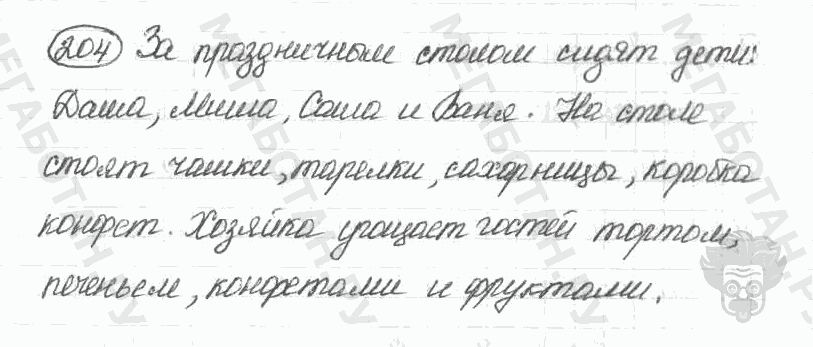 204 За праздничным столом сидят дети:
Даша, Миша, Саша и Ваня. На столе
стоят чашки, тарелки, сахарницы, коробка
конфет. Хозяйка угощает гостей тортом,
печеньем, конфетами и фруктами.
МЕГАБОТАН.РУ